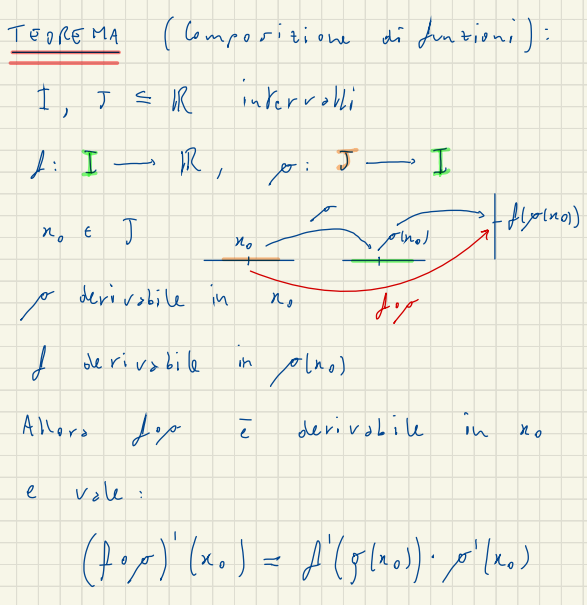 TEOREMA (Composizione di funzioni):
I, J ⊆ ℝ intervalli
f: I → ℝ, g: J → I
x₀ ∈ J
x₀ g g(x₀) f(g(x₀))
f∘g
g derivabile in x₀
f derivabile in g(x₀)
Allora f∘g è derivabile in x₀
e vale:
(f∘g)'(x₀) = f'(g(x₀))·g'(x₀)